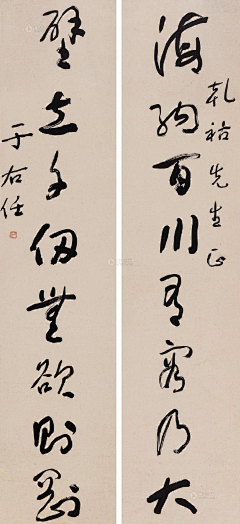 乾祐先生正
海納百川有容乃大
壁立千仞無欲則剛
于右任